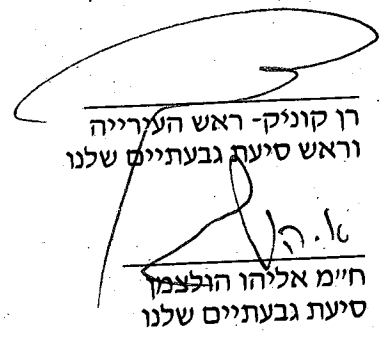 רן קוניק- ראש העירייה
וראש סיעת גבעתיים שלנו
ח״מ אליהו הולצמן
סיעת גבעתיים שלנו